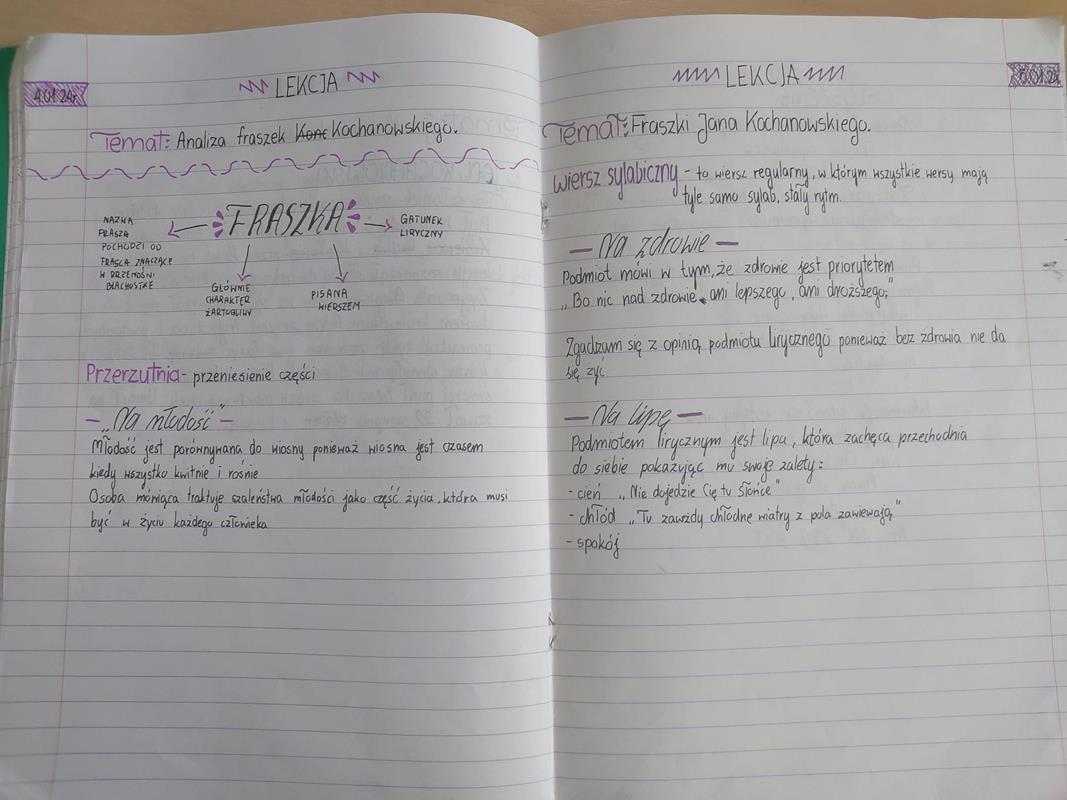 4.01.24r.
LEKCJA
Temat: Analiza fraszek Konc Kochanowskiego.
FRASZKA
NAZWA
FRASZA
POCHODZI OD
FRASCA ZNACZĄCE
W DRZEWOŚNI
BŁACHOSTKE
GŁÓWNIE
CHARAKTER
ŻARTOBLIWY
PISANA
WIERSZEM
GATUNEK
LIRYCZNY
Przerzutnia - przeniesienie części
- „Na młodość" -
Młodość jest porównywana do wiosny ponieważ wiosna jest czasem
kiedy wszystko kwitnie i rośnie
Osoba mówiąca traktuje szaleństwa młodości jako część życia, która musi
być w życiu każdego człowieka
LEKCJA
Temat: Fraszki Jana Kochanowskiego.
wiersz sylabiczny - to wiersz regularny, w którym wszystkie wersy mają
tyle samo sylab, stały rytm.
- Na zdrowie -
Podmiot mówi w tym, że zdrowie jest priorytetem
„Bo nic nad zdrowie ani lepszego, ani droższego;"
Zgadzam się z opinią podmiotu lirycznego ponieważ bez zdrowia nie da
się żyć
- Na lipę -
Podmiotem lirycznym jest lipa, która zachęca przechodnia
do siebie pokazując mu swoje zalety:
- cień „Nie dojedzie Cię tu słońce"
- chłód „Tu zawżdy chłodne wiatry z pola zawiewają"
- spokój